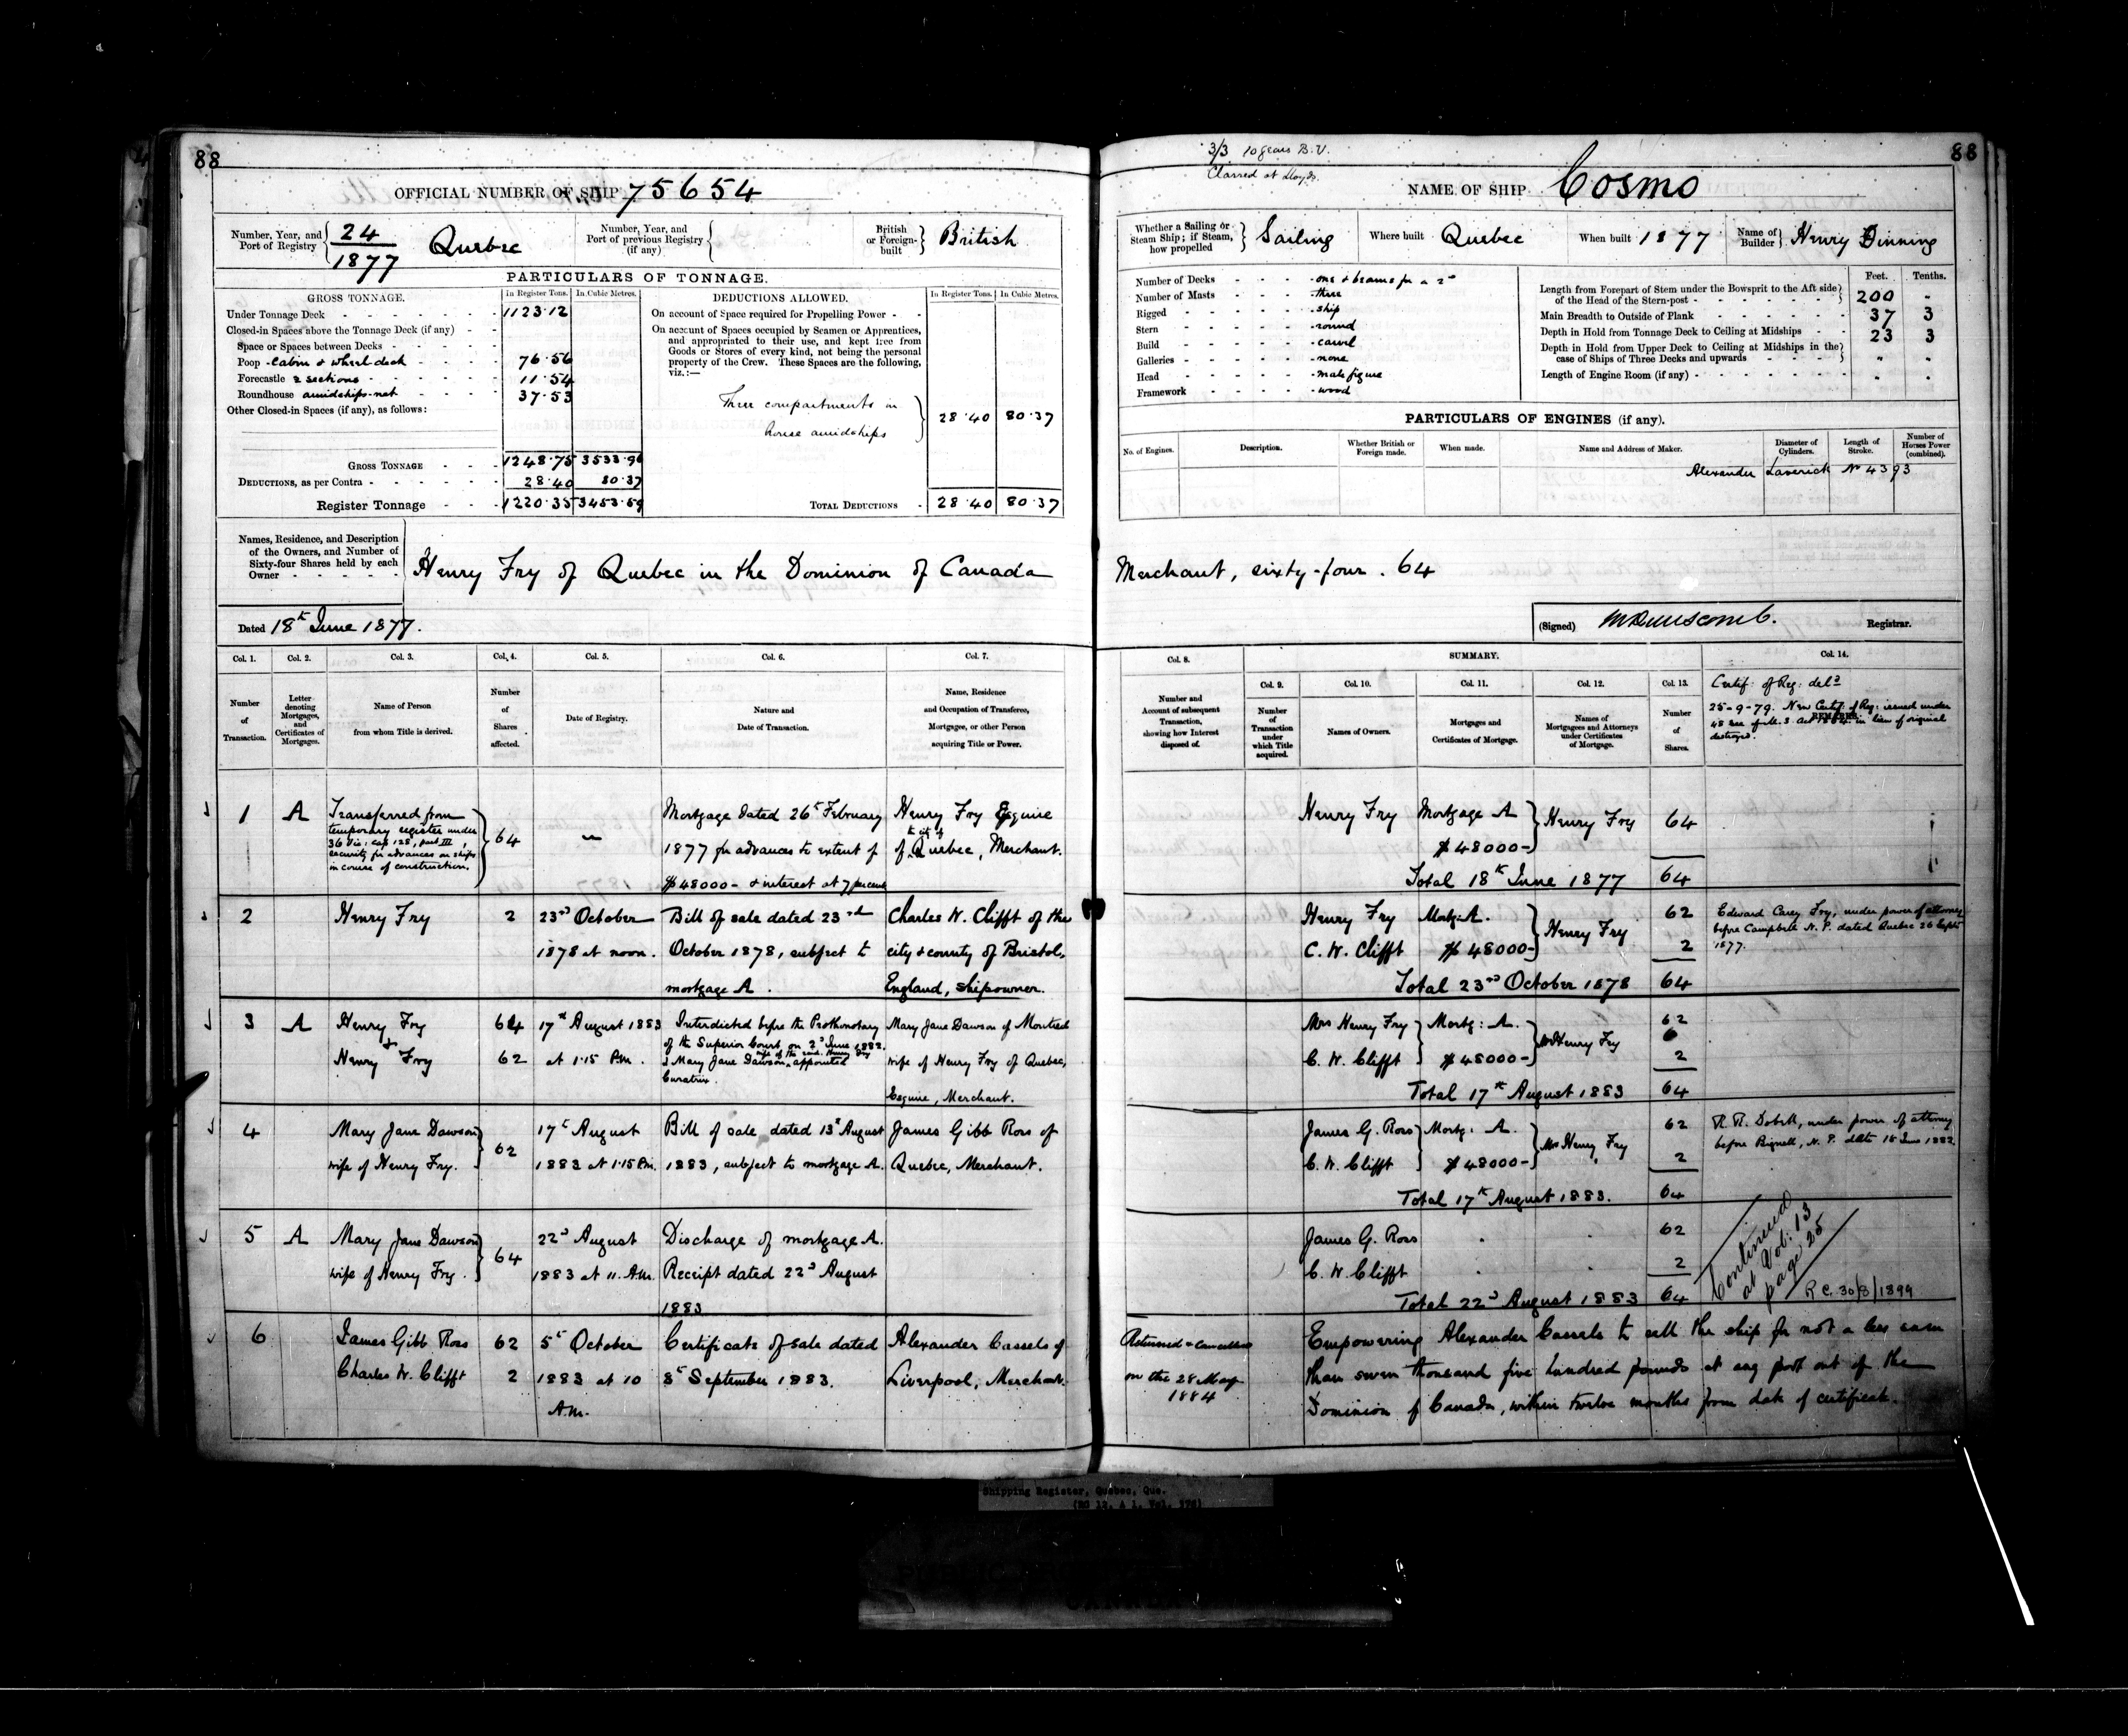 88
OFFICIAL NUMBER OF SHIP 75654
Number, Year, and Port of Registry 24/1877 Quebec
Number, Year, and Port of previous Registry (if any)
British or Foreign-built British
PARTICULARS OF TONNAGE.
GROSS TONNAGE. In Register Tons. In Cubic Metres.
Under Tonnage Deck 1123.12
Closed-in Spaces above the Tonnage Deck (if any)
Space or Spaces between Decks
Poop - Cabin & wheel deck 76.56
Forecastle 2 sections 11.54
Roundhouse amidships-net 37.53
Other Closed-in Spaces (if any), as follows:
GROSS TONNAGE 1248.75 3533.96
DEDUCTIONS, as per Contra 28.40 80.37
Register Tonnage 1220.35 3453.59
DEDUCTIONS ALLOWED. In Register Tons. In Cubic Metres.
On account of Space required for Propelling Power
On account of Spaces occupied by Seamen or Apprentices,
and appropriated to their use, and kept free from
Goods or Stores of every kind, not being the personal
property of the Crew. These Spaces are the following,
viz.:—
Three compartments in
house amidships 28.40 80.37
TOTAL DEDUCTIONS 28.40 80.37
Names, Residence, and Description
of the Owners, and Number of
Sixty-four Shares held by each
Owner
Henry Fry of Quebec in the Dominion of Canada
Dated 18th June 1877.
Col. 1. Col. 2. Col. 3. Col. 4. Col. 5. Col. 6. Col. 7.
Number of Transaction.
Letter denoting Mortgages, and Certificates of Mortgages.
Name of Person from whom Title is derived.
Number of Shares affected.
Date of Registry.
Nature and Date of Transaction.
Name, Residence and Occupation of Transferee, Mortgagee, or other Person acquiring Title or Power.
1 A Transferred from
temporary register under
36 Vic: cap 128, part III,
security for advances on ships
in course of construction.
64
Mortgage dated 26th February
1877 for advances to extent of
$48000- & interest at 7 percent
Henry Fry Esquire
of the city of Quebec, Merchant.
2 Henry Fry 2
23rd October
1878 at noon.
Bill of sale dated 23rd
October 1878, subject to
mortgage A.
Charles W. Clifft of the
city & county of Bristol,
England, shipowner.
3 A Henry Fry 64
& Henry Fry 62
17th August 1883
at 1.15 P.M.
Interdicted before the Prothonotary
of the Superior Court, on 2d June 1882.
& Mary Jane Dawson, wife of the said Henry Fry appointed
Curatrix.
Mary Jane Dawson of Montreal
wife of Henry Fry of Quebec,
Esquire, Merchant.
4 Mary Jane Dawson
wife of Henry Fry.
62
17th August
1883 at 1.15 P.m.
Bill of sale dated 13th August
1883, subject to mortgage A.
James Gibb Ross of
Quebec, Merchant.
5 A Mary Jane Dawson
wife of Henry Fry.
64
22d August
1883 at 11. A.M.
Discharge of mortgage A.
Receipt dated 22d August
1883
6 James Gibb Ross 62
Charles W. Clifft 2
5th October
1883 at 10
A.m.
Certificate of sale dated
8th September 1883.
Alexander Cassels of
Liverpool, Merchant.
88
3/3 10 years B.V.
Classed at Lloyds.
NAME OF SHIP Cosmo
Whether a Sailing or Steam Ship; if Steam, how propelled Sailing
Where built Quebec
When built 1877
Name of Builder Henry Dinning
Number of Decks one & beams for a 2nd
Number of Masts three
Rigged ship
Stern round
Build carvel
Galleries none
Head male figure
Framework wood
Feet. Tenths.
Length from Forepart of Stem under the Bowsprit to the Aft side
of the Head of the Stern-post 200 -
Main Breadth to Outside of Plank 37 3
Depth in Hold from Tonnage Deck to Ceiling at Midships 23 3
Depth in Hold from Upper Deck to Ceiling at Midships in the
case of Ships of Three Decks and upwards
Length of Engine Room (if any)
PARTICULARS OF ENGINES (if any).
No. of Engines. Description. Whether British or Foreign made. When made. Name and Address of Maker. Diameter of Cylinders. Length of Stroke. Number of Horses Power (combined).
Alexander Laverick No 4393
Merchant, sixty-four. 64
(Signed) Registrar.
Col. 8. SUMMARY. Col. 14.
Col. 9. Col. 10. Col. 11. Col. 12. Col. 13.
Number and Account of subsequent Transaction, showing how Interest disposed of.
Number of Transaction under which Title acquired.
Names of Owners.
Mortgages and Certificates of Mortgage.
Names of Mortgagees and Attorneys under Certificates of Mortgage.
Number of Shares.
REMARKS.
Certif: of Reg: deld
25-9-79. New Certif: of Reg: issued under
48 sec of M. S. Act 1854. in lieu of original
destroyed.
Henry Fry Mortgage A Henry Fry 64
$48000-
Total 18th June 1877 64
Henry Fry Mortg: A. Henry Fry 62
C. W. Clifft $48000- 2
Total 23rd October 1878 64
Edward Carey Fry, under power of attorney
before Campbell N. P. dated Quebec 26 Sept
1877.
Mrs Henry Fry Mortg: A. Mrs Henry Fry 62
C. W. Clifft $48000- 2
Total 17th August 1883 64
James G. Ross Mortg: A. Mrs Henry Fry 62
C. W. Clifft $48000- 2
Total 17th August 1883. 64
R. R. Dobell, under power of attorney
before Bignell, N. P. date 15 June 1882
James G. Ross 62
C. W. Clifft 2
Total 22d August 1883 64
Continued
at Vol: 13
page 25
R C. 30/8/1899
Returned & Cancelled
on the 28 May
1884
Empowering Alexander Cassels to sell the ship for not a less sum
than seven thousand five hundred pounds at any port out of the
Dominion of Canada, within twelve months from date of certificate.
Shipping Register, Quebec, Que.